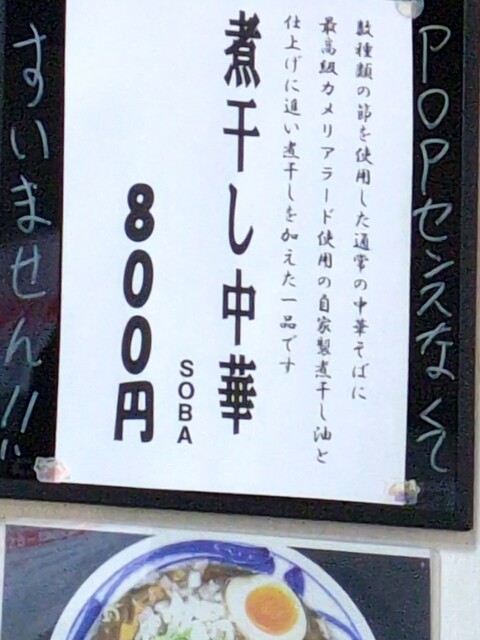 POPセンスなくて
数種類の節を使用した通常の中華そばに
最高級カメリアラード使用の自家製煮干し油と
仕上げに追い煮干しを加えた一品です
煮干し中華
SOBA
800円
すいません!!